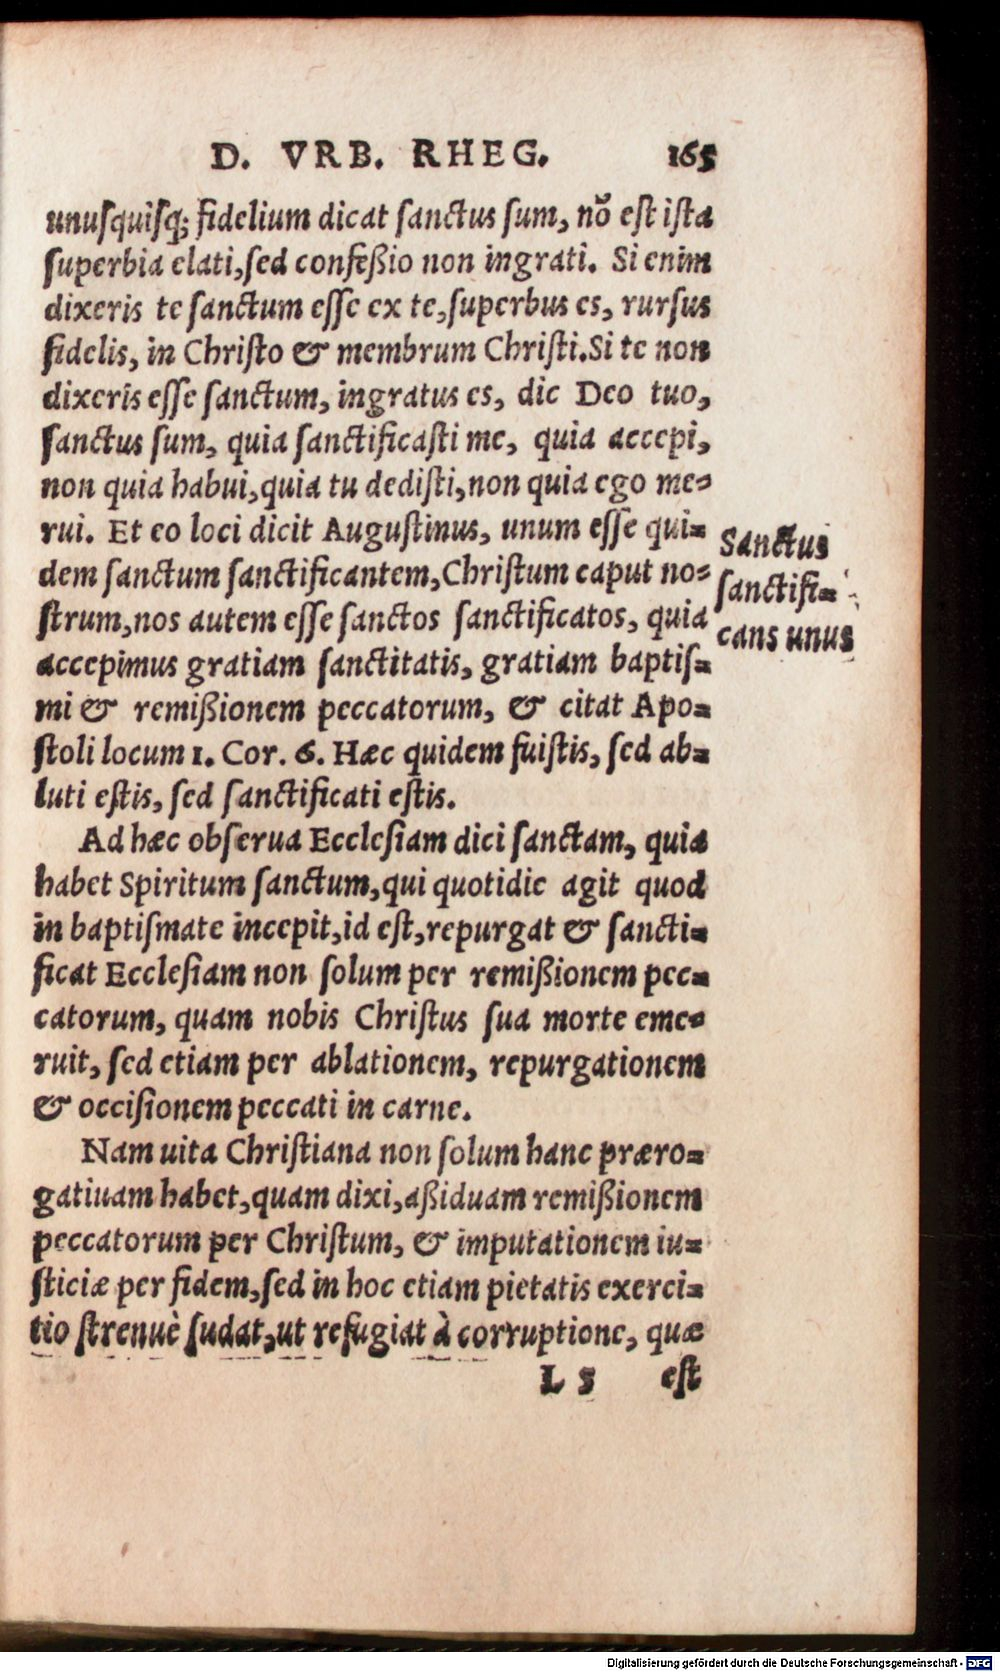 D. VRB. RHEG. 165
unuſquiſq; fidelium dicat ſanctus ſum, nõ eſt iſta
ſuperbia elati, ſed confeßio non ingrati. Si enim
dixeris te ſanctum eſſe ex te, ſuperbus es, rurſus
fidelis, in Chriſto & membrum Chriſti. Si te non
dixeris eſſe ſanctum, ingratus es, dic Deo tuo,
ſanctus ſum, quia ſanctificaſti me, quia accepi,
non quia habui, quia tu dediſti, non quia ego me=
rui. Et eo loci dicit Auguſtinus, unum eſſe qui=
dem ſanctum ſanctificantem, Chriſtum caput no=
ſtrum, nos autem eſſe ſanctos ſanctificatos, quia
accepimus gratiam ſanctitatis, gratiam baptiſ=
mi & remißionem peccatorum, & citat Apo=
ſtoli locum 1. Cor. 6. Hæc quidem fuiſtis, ſed ab=
luti eſtis, ſed ſanctificati eſtis.
Sanctus
ſanctifi=
cans unus
Ad hæc obſerua Eccleſiam dici ſanctam, quia
habet Spiritum ſanctum, qui quotidie agit quod
in baptiſmate incepit, id eſt, repurgat & ſancti=
ficat Eccleſiam non ſolum per remißionem pec=
catorum, quam nobis Chriſtus ſua morte eme=
ruit, ſed etiam per ablationem, repurgationem
& occiſionem peccati in carne.
Nam uita Chriſtiana non ſolum hanc præro=
gatiuam habet, quam dixi, aßiduam remißionem
peccatorum per Chriſtum, & imputationem iu=
ſticiæ per fidem, ſed in hoc etiam pietatis exerci=
tio ſtrenuè ſudat, ut refugiat à corruptione, quæ
L 5 eſt
Digitalisierung gefördert durch die Deutsche Forschungsgemeinschaft - DFG